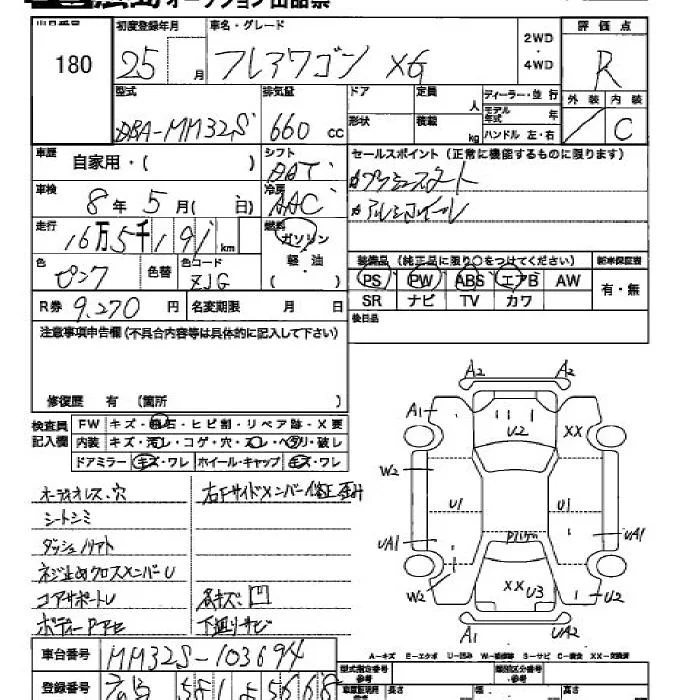 オークション出品票
出品番号 初度登録年月 車名・グレード 2WD・4WD 評価点
180 25 月 フレアワゴン XG R
型式 排気量 ドア 定員 人 ディーラー・並行 外装 内装
DBA-MM32S 660 cc 形状 積載 kg モデル年式 年 ハンドル 左・右 C
車歴 自家用・( ) シフト AAT セールスポイント(正常に機能するものに限ります)
車検 8年5月( 日) 冷房 AAC プッシュスタート
走行 16万5千191km 燃料 ガソリン 軽油 ( アルミホイール
色 ピンク 色替 色コード ZJG 装備品(純正品に限り○をつけてください) 新車保証書
PS PW ABS エアB AW 有・無
R券 9,270 円 名変期限 月 日 SR ナビ TV カワ
注意事項申告欄(不具合内容等は具体的に記入して下さい) 後日品
修復歴 有 (箇所 )
検査員記入欄 FW キズ・飛石・ヒビ割・リペア跡・X要
内装 キズ・汚レ・コゲ・穴・スレ・ヘタリ・破レ
ドアミラー キズ・ワレ ホイール・キャップ キズ・ワレ
オーディオレス、穴 右Fサイドメンバー修正歪み
シートシミ
ダッシュノリアト
ネジ止めクロスメンバーU
コアサポートU 各キズ凹
下廻りサビ
A2 A2
A1 U2 XX
W2
U1 U1
UA1 UA1
W2 XX U3 U2
A1 UA2
A-キズ E-エクボ U-凹み W-補修跡 S-サビ C-腐食 XX-交換済
車台番号 MM32S-103694 型式指定番号 参考 類別区分番号 参考
登録番号 581 5668 長さ 幅 高さ